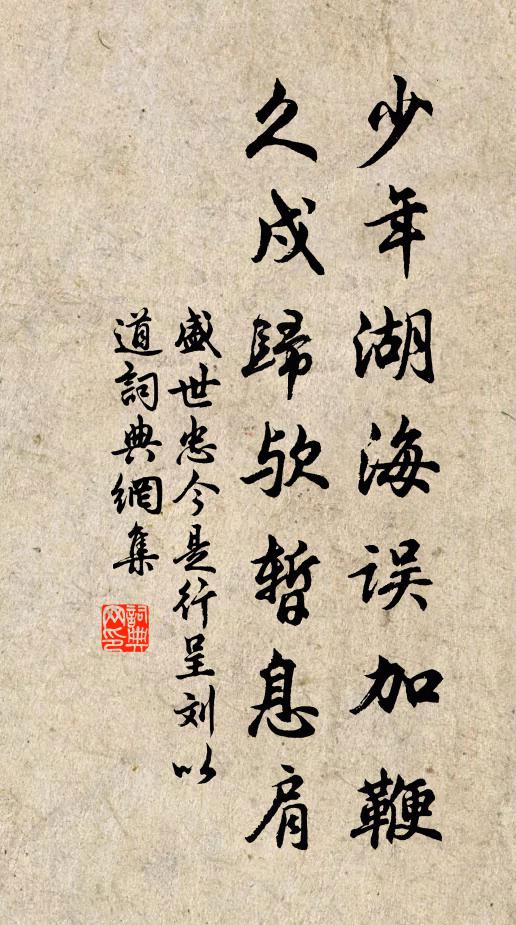 少年湖海误加鞭
久戍歸欤暂息肩
盛世忠今是行呈刘以
道詞典網集
詞典网印